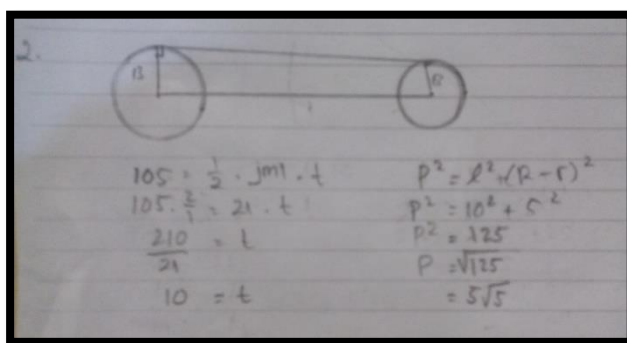 2.
13
8
105 = 1/2 . jml . t
105 . 2/1 = 21 . t
210/21 = t
10 = t
p² = l² + (R - r)²
p² = 10² + 5²
p² = 125
p = √125
= 5√5